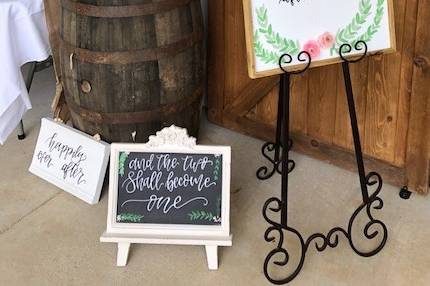 happily
ever after
and the two
Shall become
one